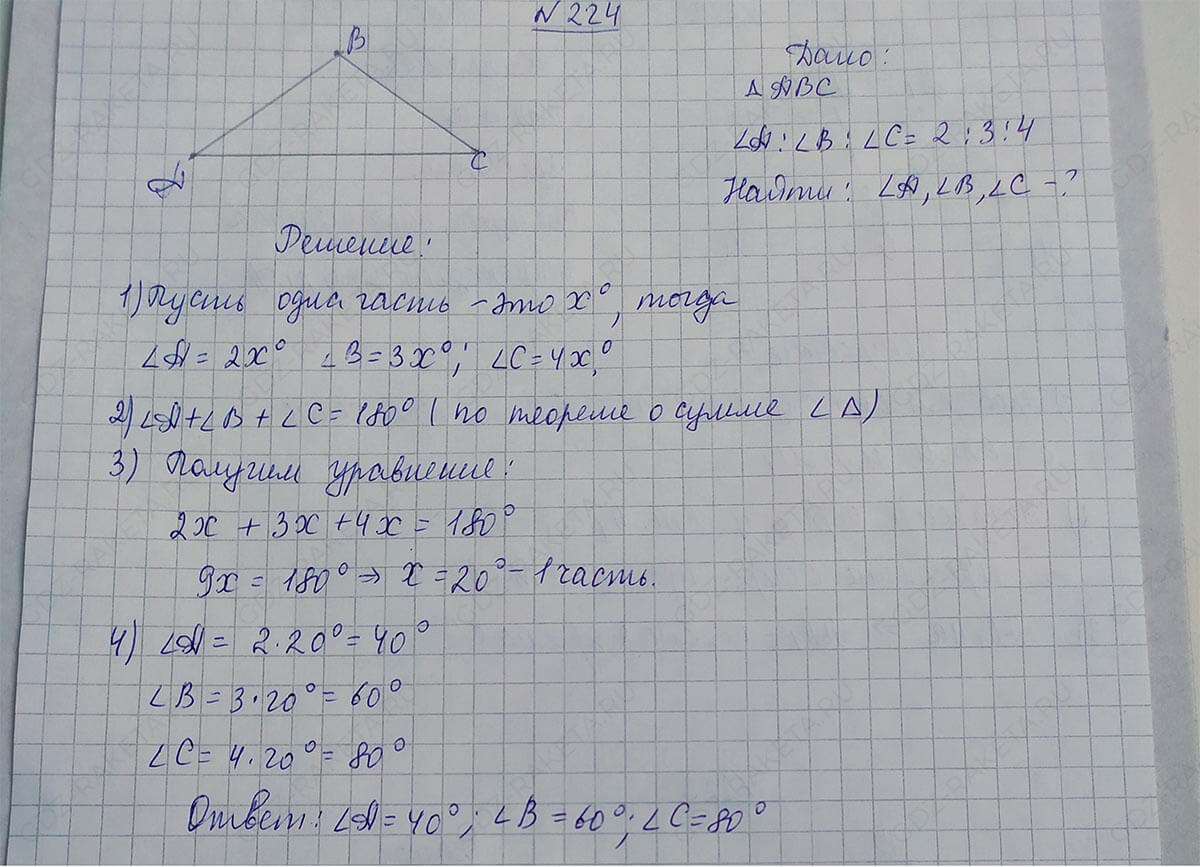 N 224
B
A
C
Дано:
Δ ABC
∠A : ∠B : ∠C = 2 : 3 : 4
Найти: ∠A, ∠B, ∠C - ?
Решение:
1) Пусть одна часть - это x°, тогда
∠A = 2x° ∠B = 3x°; ∠C = 4x,°
2) ∠A + ∠B + ∠C = 180° ( по теореме о сумме ∠ Δ)
3) Получим уравнение:
2x + 3x + 4x = 180°
9x = 180° ⇒ x = 20° - 1 часть.
4) ∠A = 2 · 20° = 40°
∠B = 3 · 20° = 60°
∠C = 4 · 20° = 80°
Ответ: ∠A = 40°; ∠B = 60°; ∠C = 80°
GDZ-RAKETA.RU